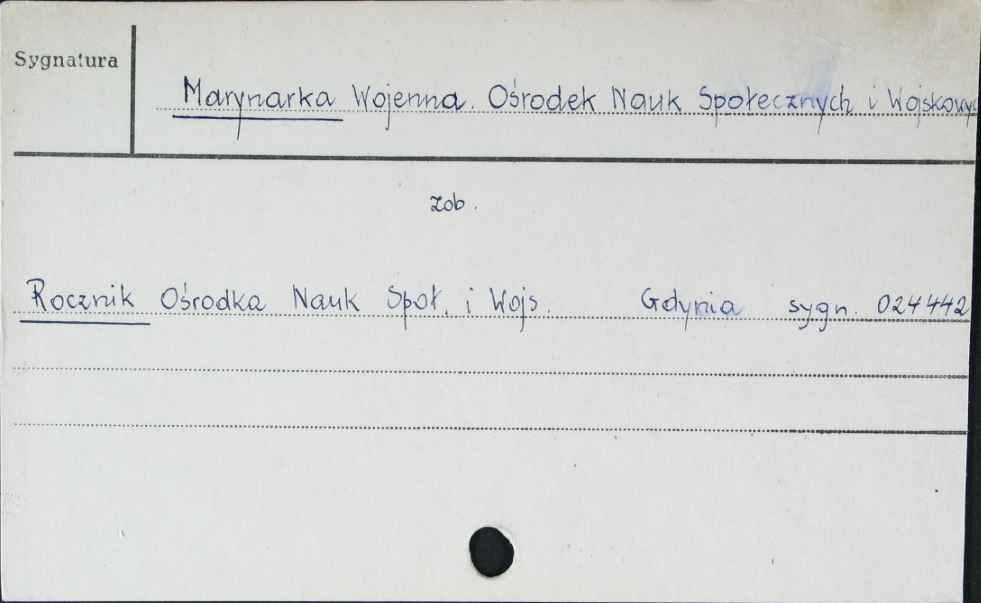 Sygnatura
Marynarka Wojenna. Ośrodek Nauk Społecznych i Wojskowyc
zob.
Rocznik Ośrodka Nauk Społ. i Wojs. Gdynia sygn. 024442